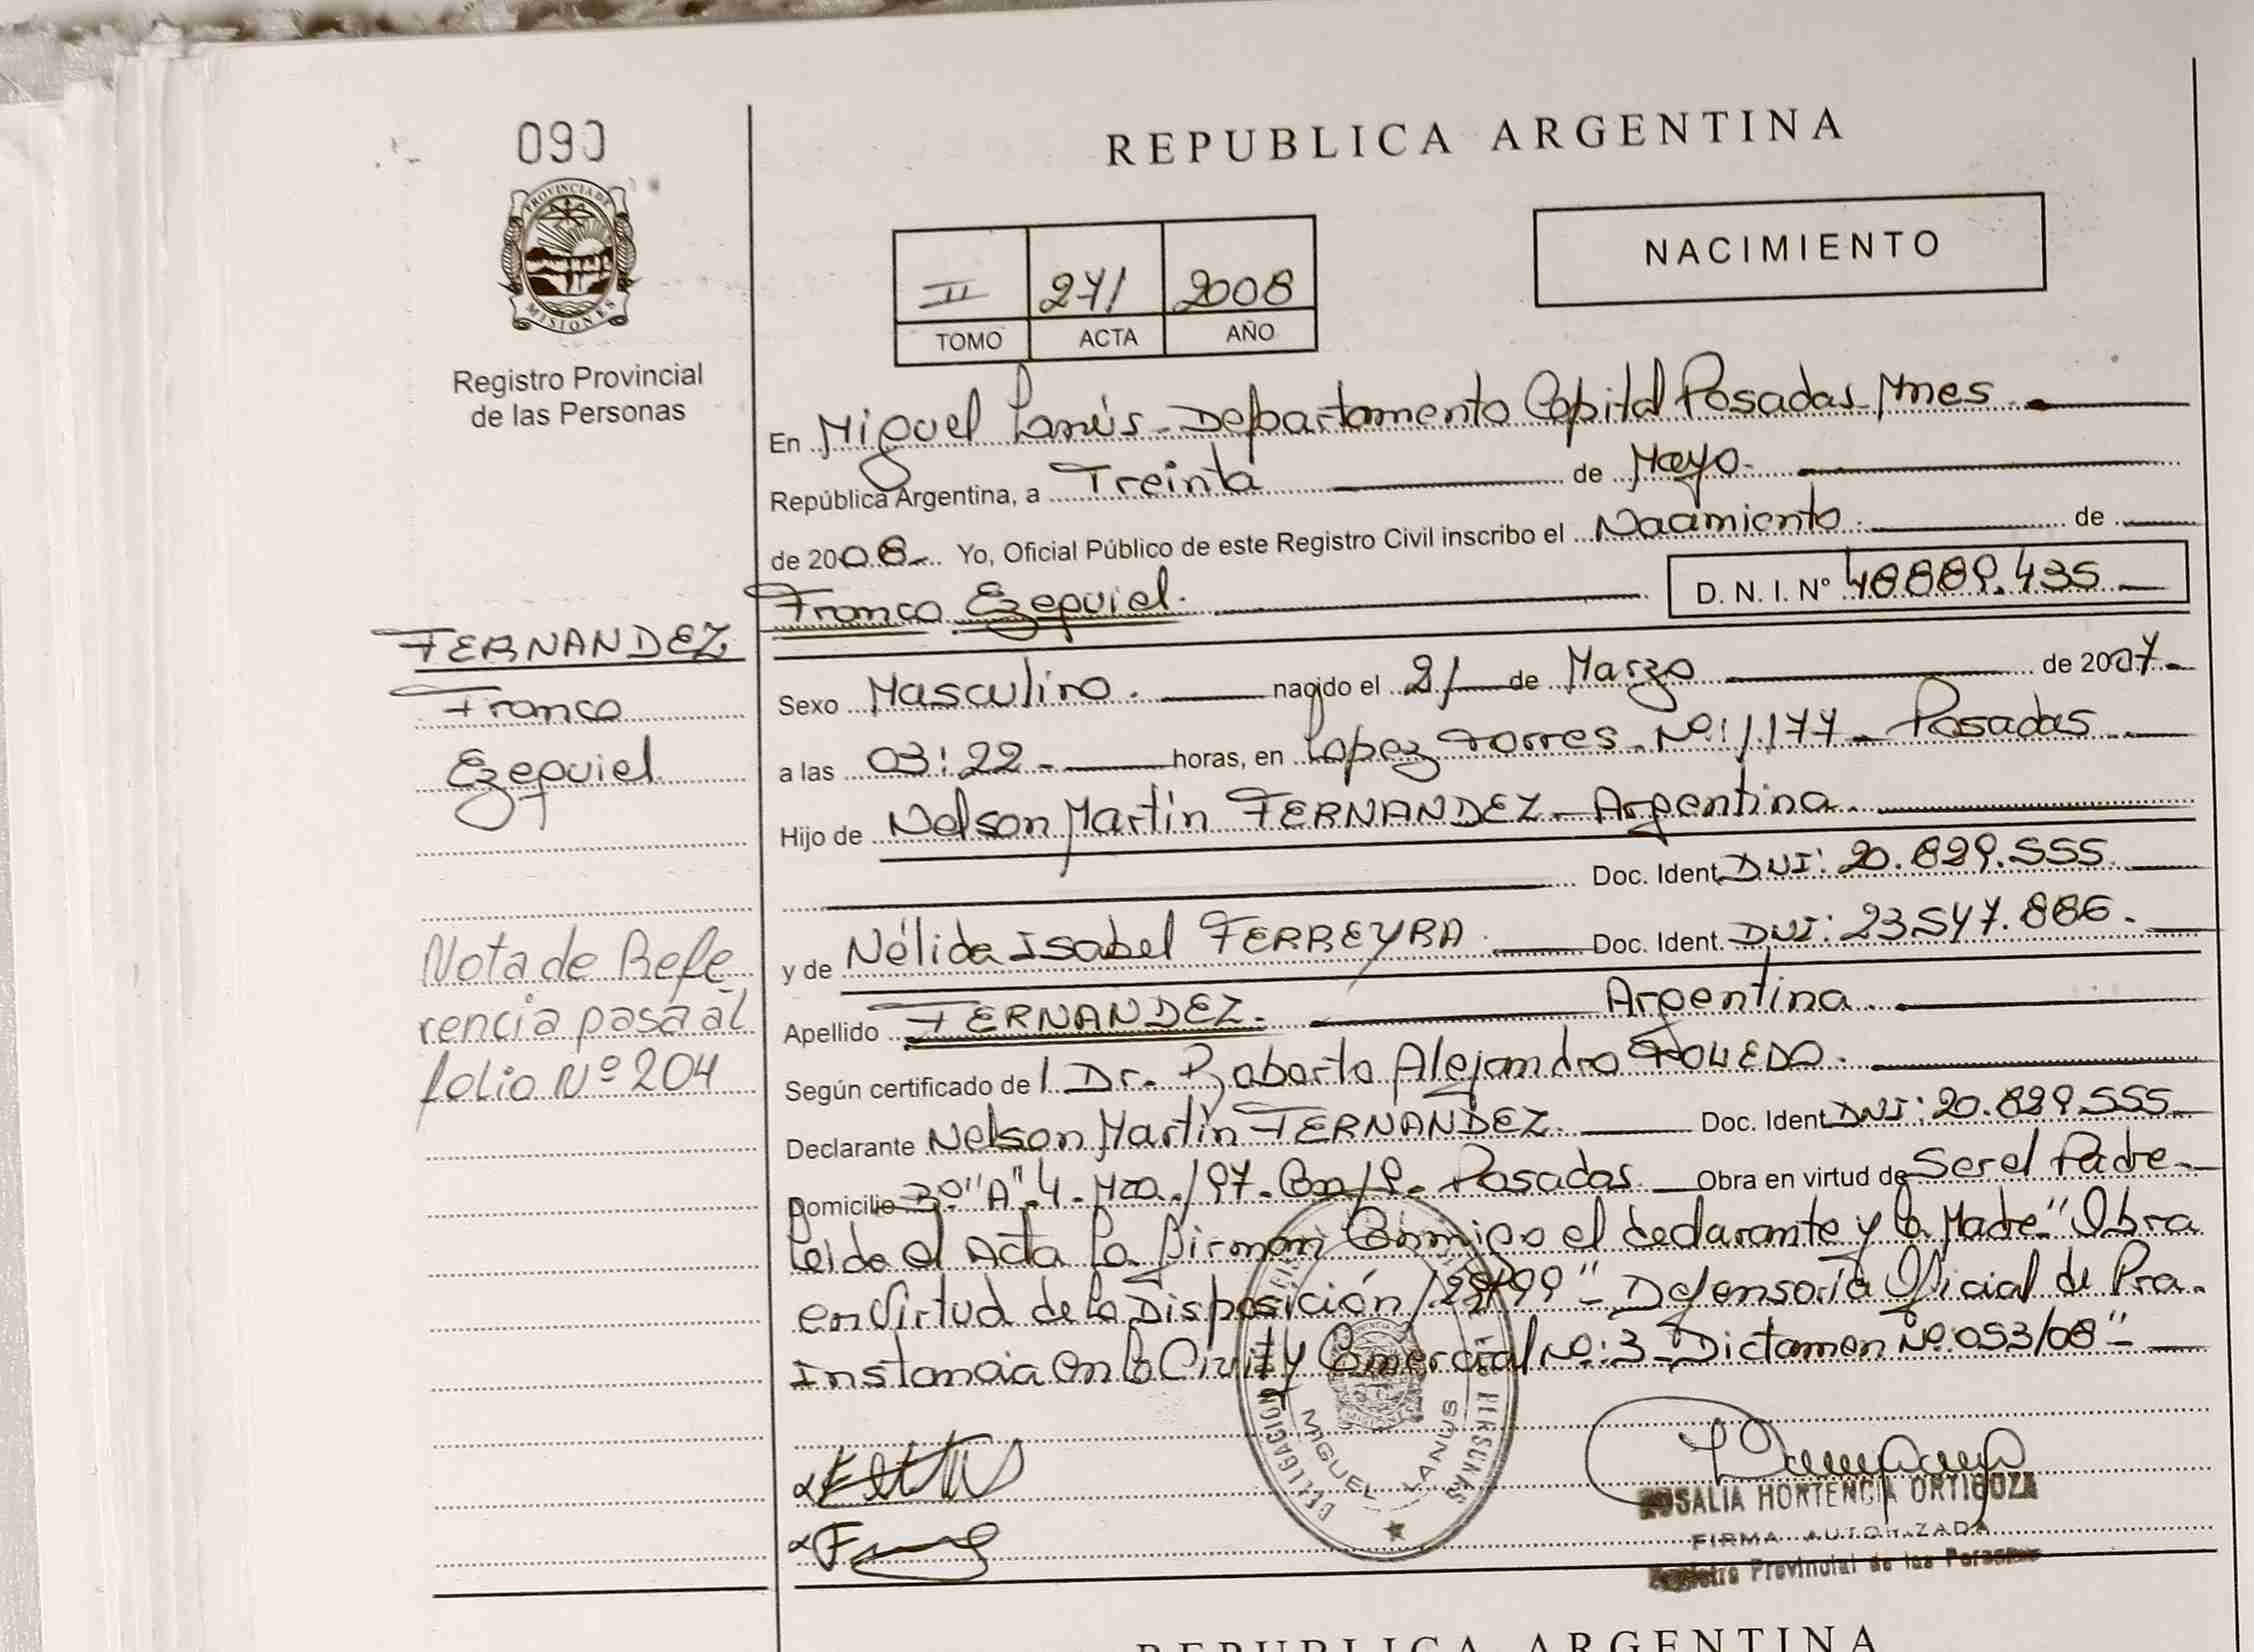 090
PROVINCIA DE
MISIONES
Registro Provincial
de las Personas
FERNANDEZ
Franco
Ezequiel
Nota de Refe
rencia pasa al
folio Nº 204
REPUBLICA ARGENTINA
NACIMIENTO
II 271 2008
TOMO ACTA AÑO
En Miguel Lanús - Departamento Capital Posadas - Mnes.
República Argentina, a Treinta de Mayo.
de 2008. Yo, Oficial Público de este Registro Civil inscribo el Nacimiento. de
Franco Ezequiel. D. N. I. Nº 48889.435
Sexo Masculino. nacido el 21 de Marzo de 2007
a las 03:22 - horas, en Lopez Torres - Nº: 1177 - Posadas
Hijo de Nelson Martín FERNANDEZ - Argentina
Doc. Ident. DNI: 20.829.555
y de Nélida Isabel FERREYRA Doc. Ident. DNI: 23547.886.
Apellido FERNANDEZ. Argentina
Según certificado de l Dr. Roberto Alejandro
Declarante Nelson Martín FERNANDEZ. Doc. Ident. DNI: 20.829.555
Domicilio "A" 4 - Mza. 197 - Posadas Obra en virtud de Ser el Padre
Leida el Acta la firman Conmigo el declarante y la Madre "Obra
en Virtud de la Disposición /99" - Defensoría Oficial de Pra.
Instancia en lo Civil y Comercial Nº: 3 - Dictamen Nº 053/08" -
DELEGACION
PERSONAS
MIGUEL LANUS
ROSALIA HORTENCIA ORTIGOZA
FIRMA AUTORIZADA
Registro Provincial de las Personas
REPUBLICA ARGENTINA